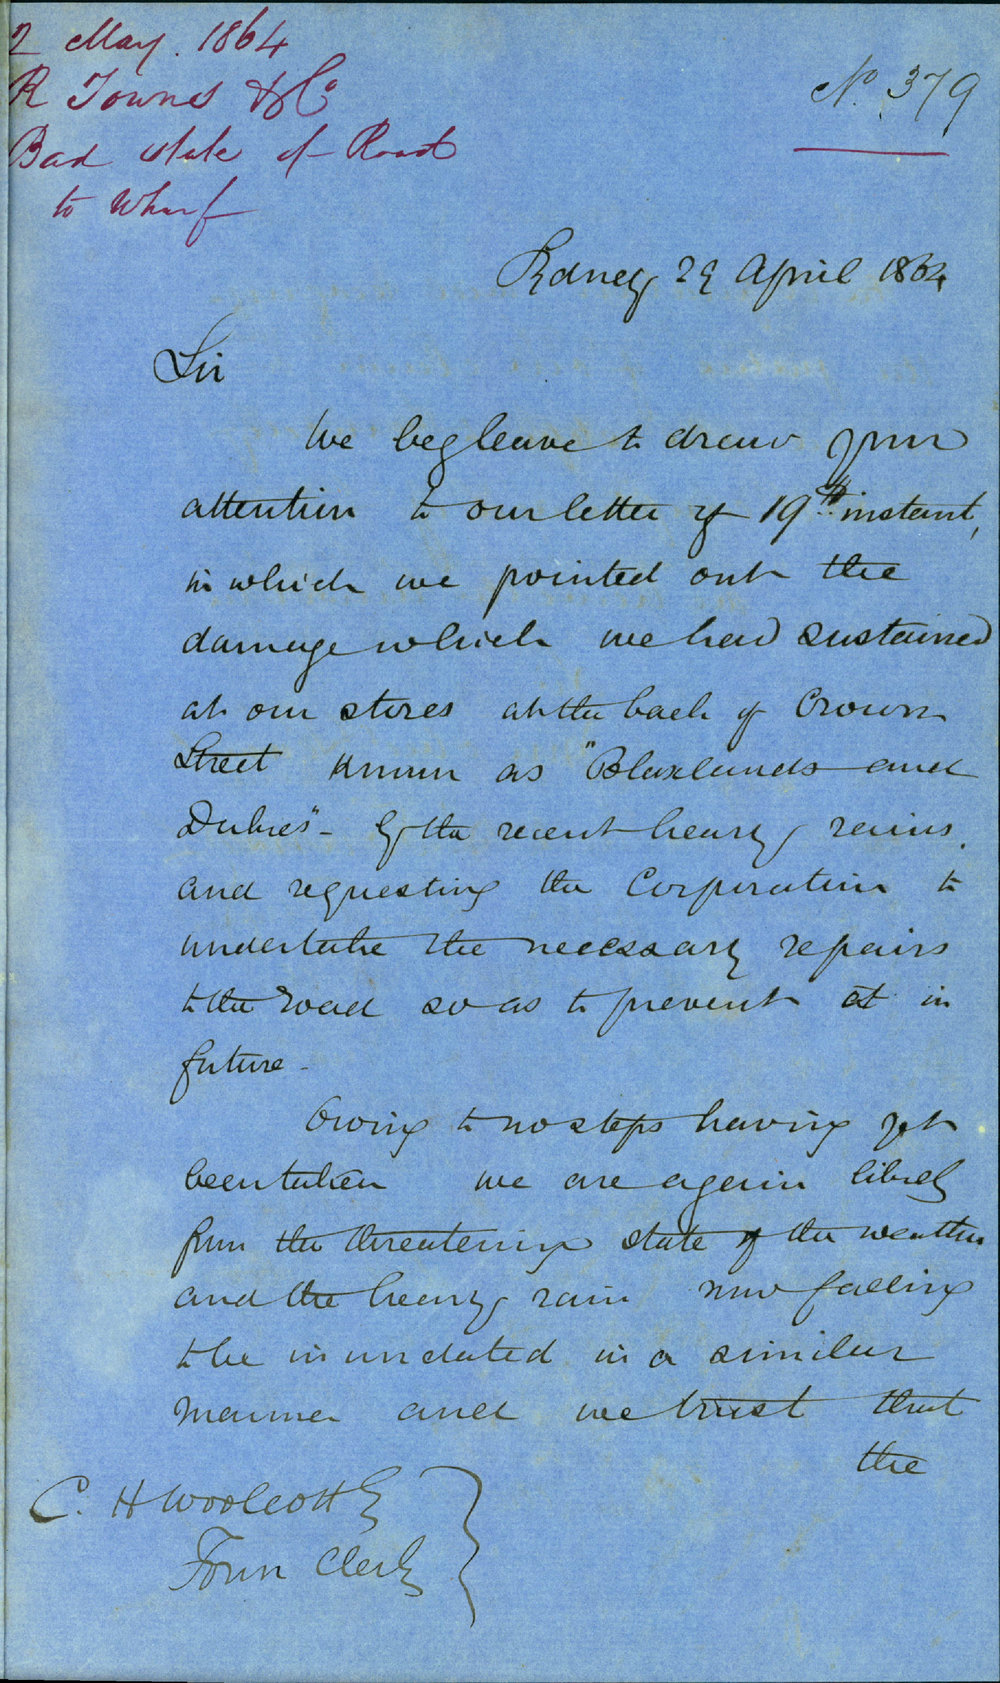 2 May. 1864
R Towns & Co
Bad state of Road
to Wharf
No. 379
Sydney 29 April 1864
Sir
We beg leave to draw your
attention to our letter of 19th instant,
in which we pointed out the
damage which we had sustained
at our stores at the back of Crown
Street known as "Blaxlands and
Dukes" - by the recent heavy rains.
and requesting the Corporation to
undertake the necessary repairs
to the road so as to prevent it in
future -
Owing to no steps having yet
been taken we are again likely
from the threatening state of the weather
and the heavy rain now falling
to be inundated in a similar
manner and we trust that
the
C. H Woolcott
Town Clerk